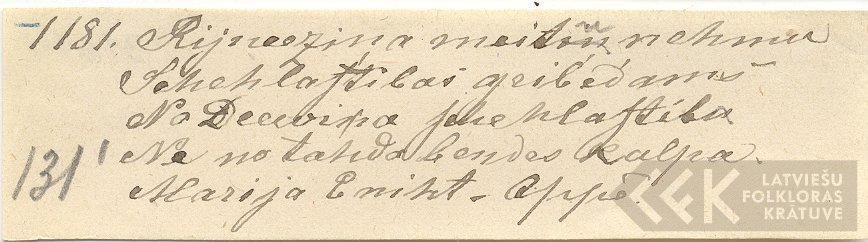 1181. Rijneezina meitiņ nehmu
Schehlastibas gribedams
No Deewiņa schehlastiba
Ne no tahda bendes kalpa.
Marija Eniht - Oppe.
131'
LATVIEŠU
FOLKLORAS
KRĀTUVE